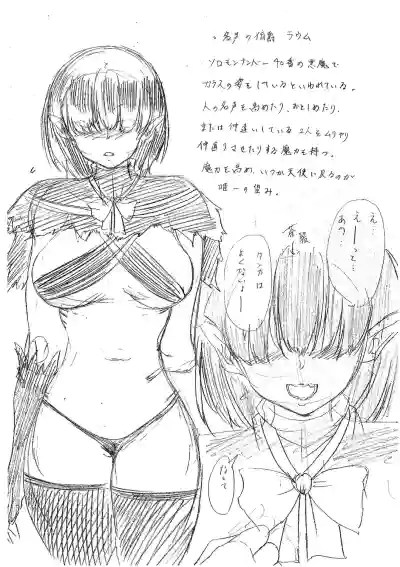 名声の伯爵 ラウム
ソロモンナンバー40番の悪魔で
カラスの姿をしているといわれている。
人の名声を高めたり、おとしめたり、
または仲違いしている2人をムリヤリ
仲直りさせたりする魔力を持つ。
魔力を高め、いつか天使に戻るのが
唯一の望み。
え…
えーーって…
あの…
ケンカは
よくないよー